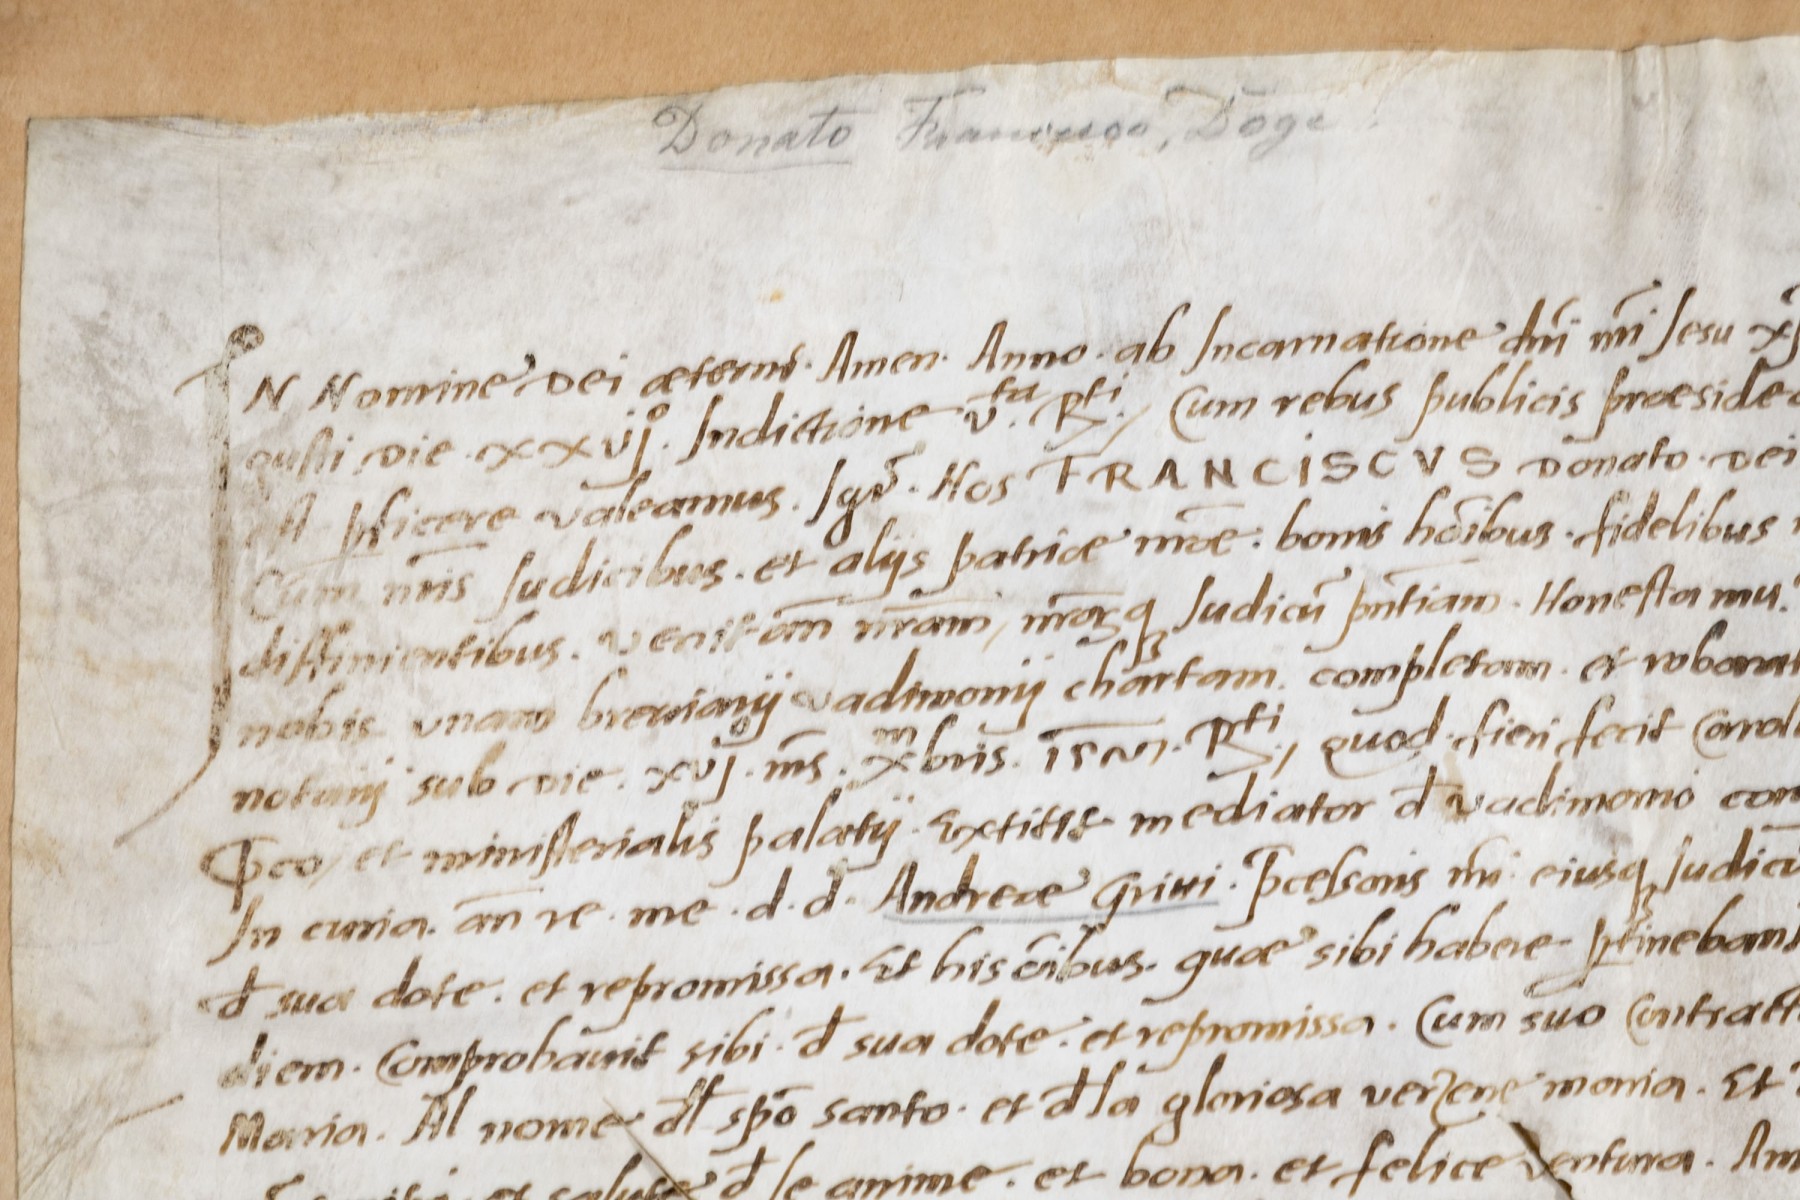 Donato Francesco, Doge
IN Nomine Dei æterni. Amen. Anno. ab Incarnatione dñi ñri Jesu
gusti Die. xxvijº. Indictione. v.ta Rti., Cum rebus publicis præside
est pficere valeamus. Igr̃. Nos FRANCISCVS Donato. Dei
Cum nr̃is Judicibus. et alijs patriæ nr̃æ. bonis hõibus. fidelibus
diffinientibus. Venit añ nr̃am, Judicũ pñtiam. Honesta
nobis unam breviarij vadimonij chartam. completam. et roborat
notarij sub Die. xvj. ms. Xbris. Rti., quod. fieri fecit
Pco, et ministerialis palatij. Extitit mediator đ vadimonio com
In curia. añ re. me. d. d. Andreæ Griti. Pcessoris ñri. eiusq Judicũ
đ sua dote. et repromissa. Et his õibus. quæ sibi habere. ptinebant
diem. Comprobavit sibi. đ sua dote. et repromissa. Cum suo Contract
Maria. Al nome đl spõ santo. et đ la gloriosa verzene maria. Et
et salute đ le anime. et bona. et felice ventura. Am